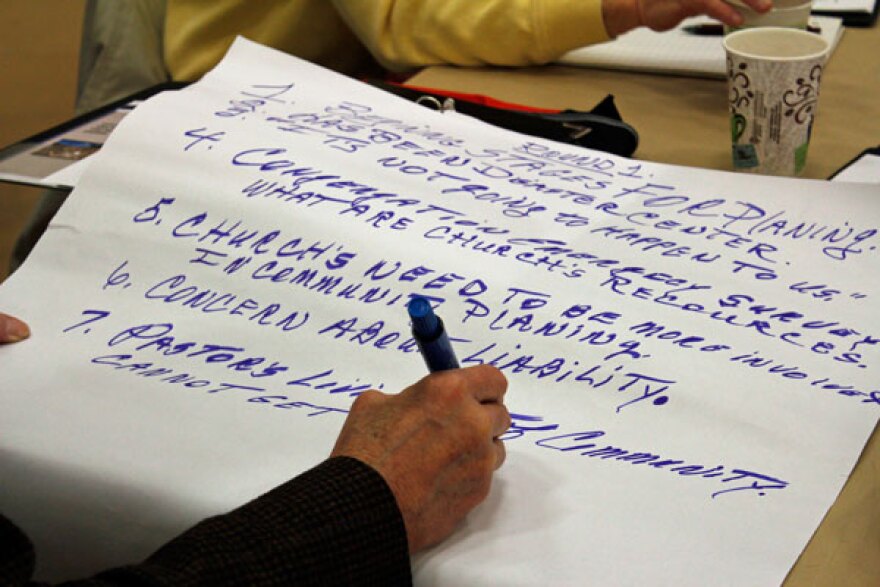 ROUND 1.
1. BEGINNING STAGES FOR PLANING.
HAS BEEN DISASTER CENTER.
IS NOT GOING TO HAPPEN TO US."
4. CONGREGATION EMERGENCY SURVEY
WHAT ARE CHURCH'S RESOURCES.
5. CHURCH'S NEED TO BE MORE INVOLVED
IN COMMUNITY PLANING.
6. CONCERN ABOUT LIABILITY.
7. PASTOR'S LIVI COMMUNITY.
CANNOT GET